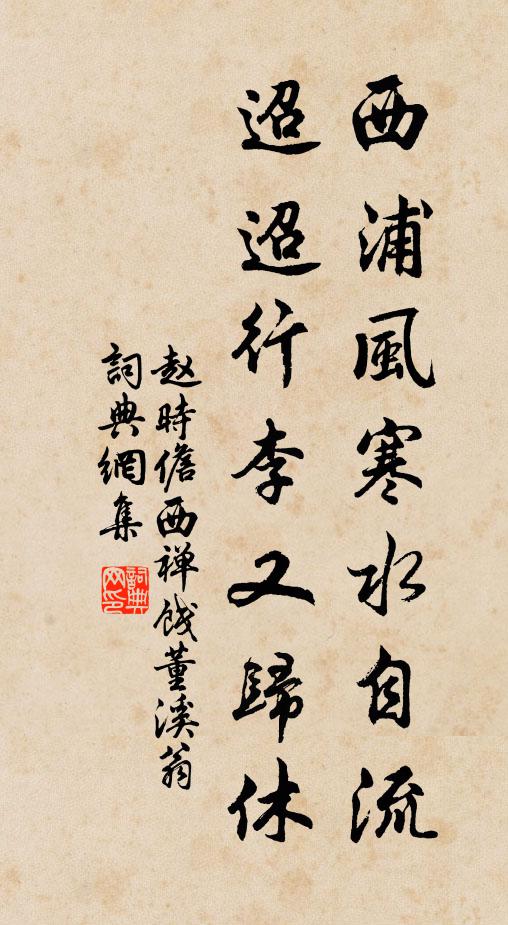 西浦風寒水自流
迢迢行李又歸休
赵時儋西禅餞董溪翁
詞典網集
詞典网印